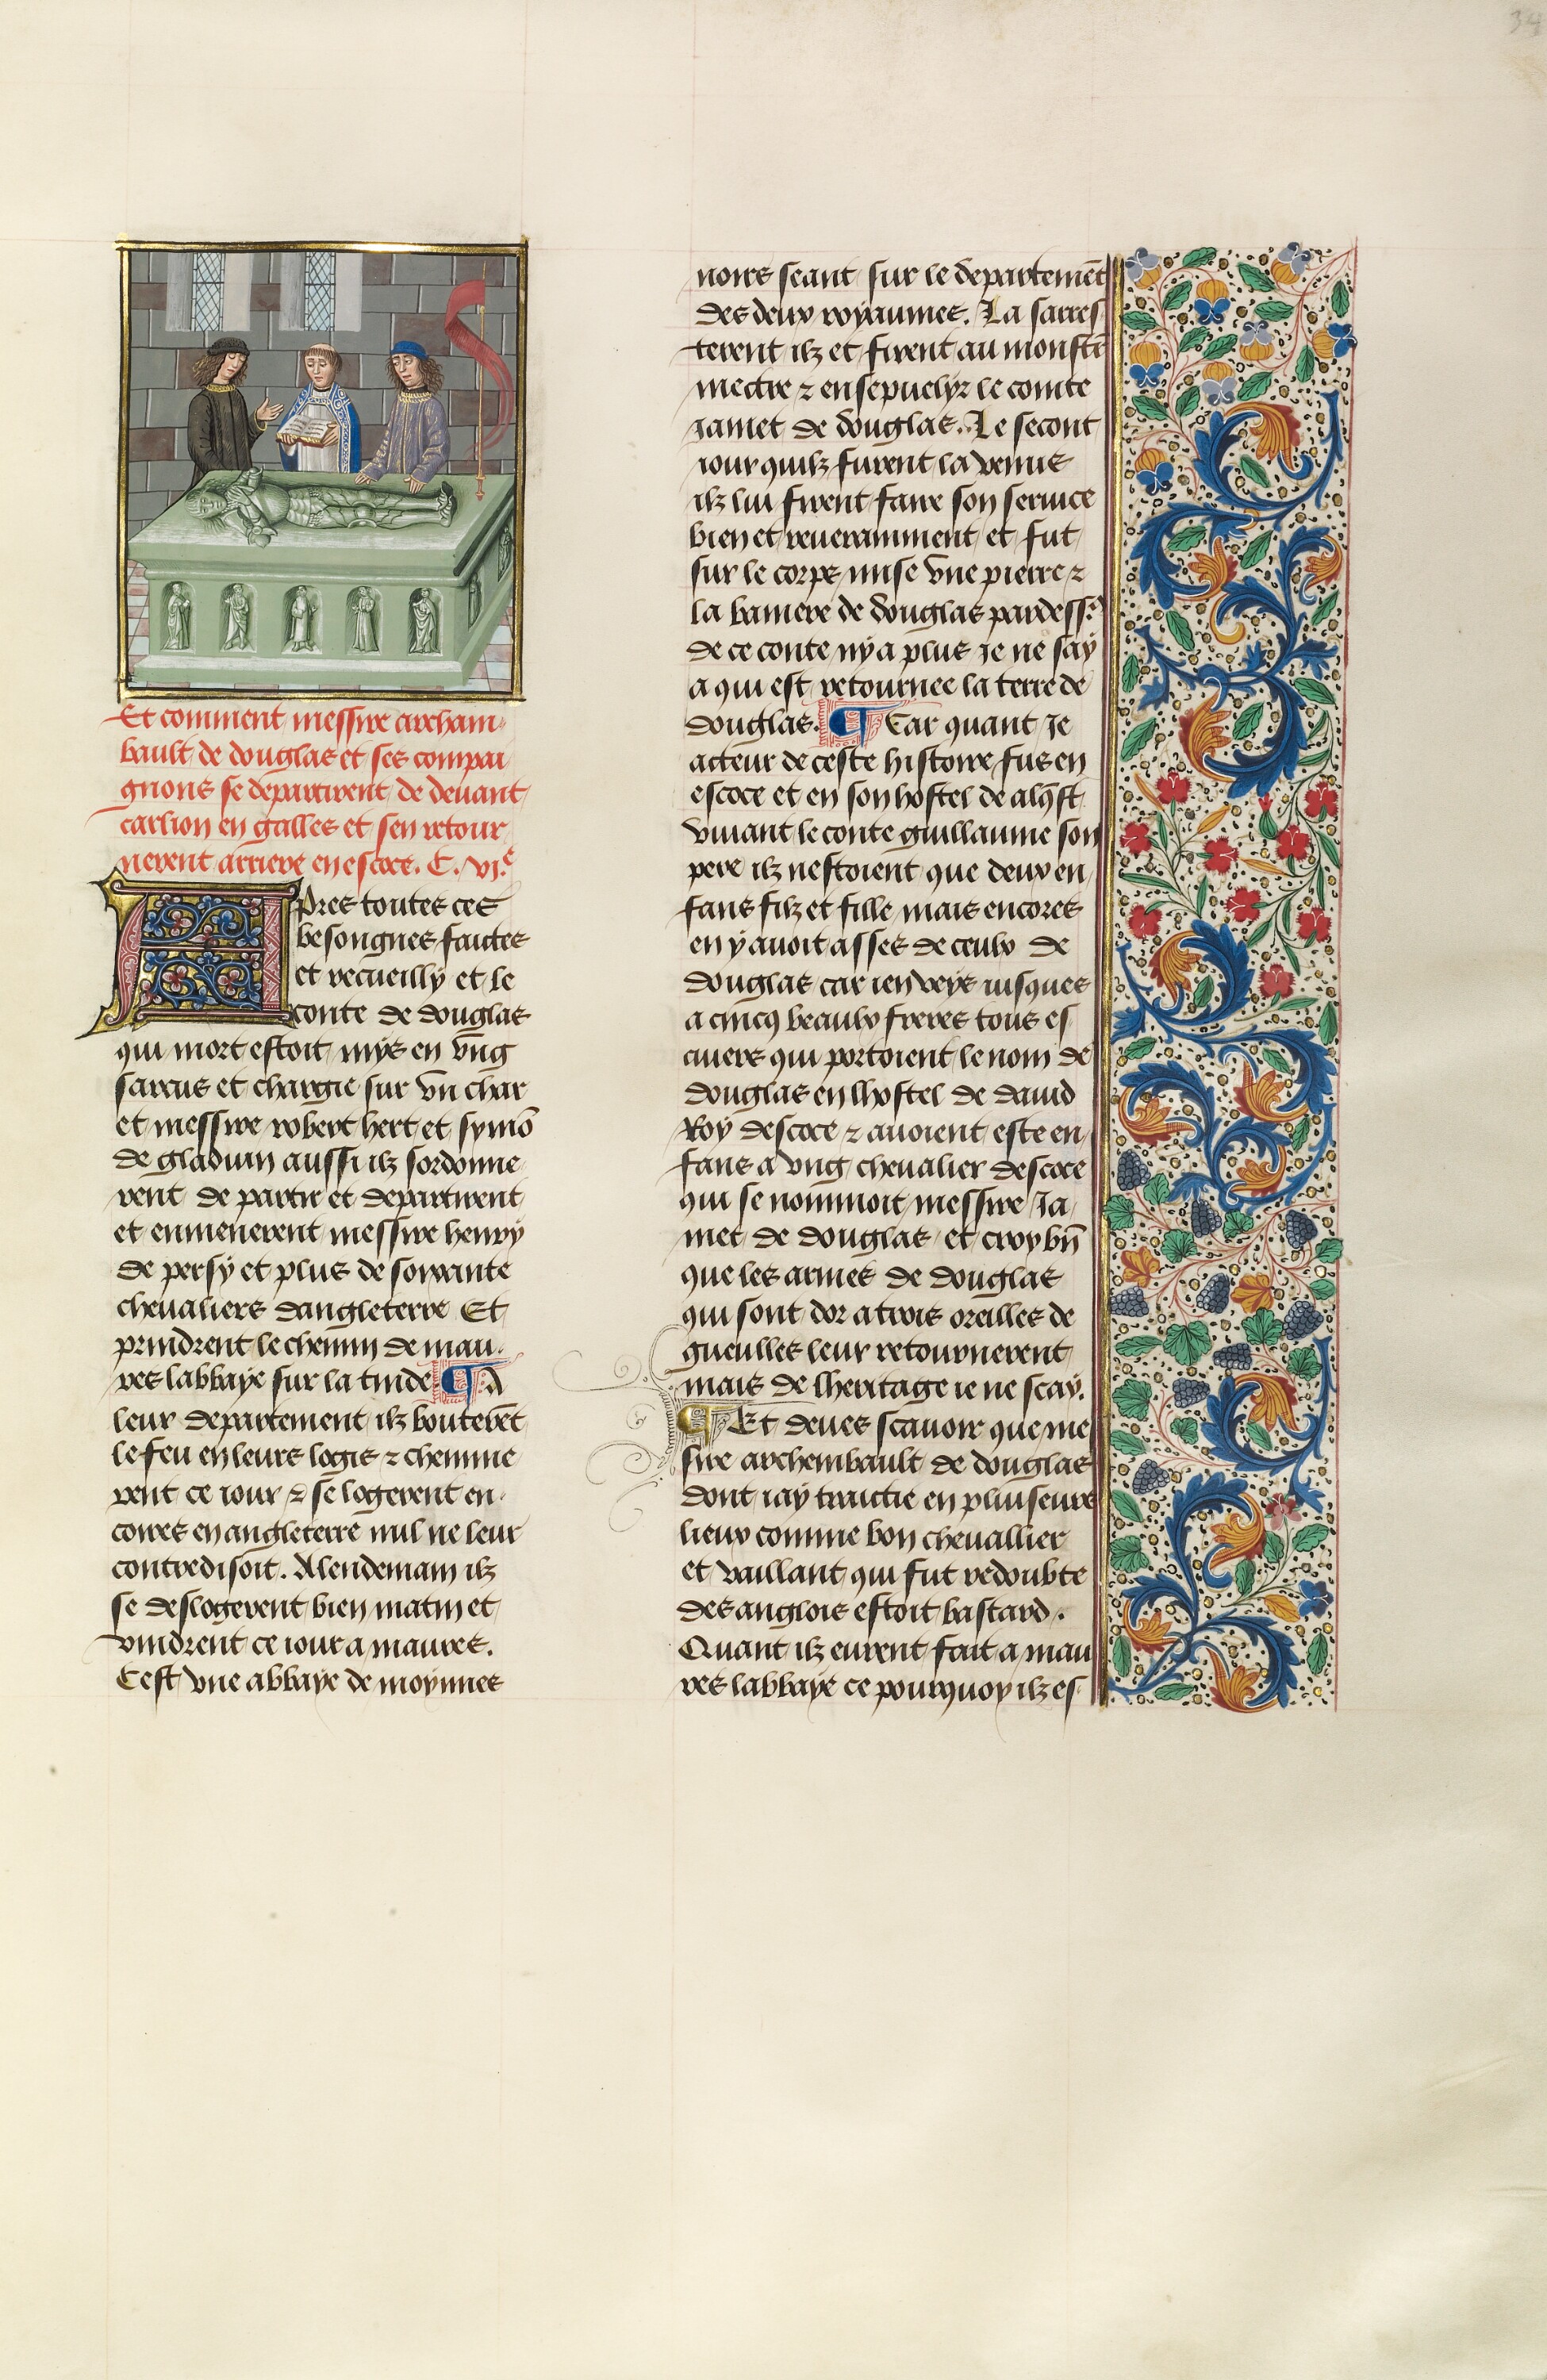 34
Et comment messire archam
bault de douglas et ses compai
gnons se departirent de deuant
carlion en galles et sen retour
nerent arriere en escoce. C. vi.e
Apres toutes ces
besongnes faictes
et recueilly et le
conte de douglas
qui mort estoit mys en vng
sarcus et chargie sur vn char
et messire robert hert et symō
de gladuin aussi ilz sordonne
rent de partir et departirent
et enmenerent messire henry
de persy et plus de soixante
cheualiers dangleterre Et
prindrent le chemin de mau
res labbaye sur la tinde ¶ A
leur departement ilz bouterēt
le feu en leurs logis ⁊ chemine
rent ce iour ⁊ se logerent en
cores en angleterre nul ne leur
contredisoit. Alendemain ilz
se deslogerent bien matin et
vindrent ce iour a maures.
Cest vne abbaye de moynnes
noirs seant sur le departemēt
des deux royaumes. La sarres
terent ilz et firent au monstē
mectre ⁊ ensepuelyr le comte
iamet de douglas. Le secont
iour quilz furent la venus
ilz lui firent faire son seruice
bien et reueramment et fut
sur le corps mise vne pierre ⁊
la baniere de douglas pardess9
de ce conte ny a plus Je ne say
a qui est retournee la terre de
douglas. ¶ Car quant Je
acteur de ceste histoire fus en
escoce et en son hostel de alqst
viuant le conte guillaume son
pere ilz nestoient que deux en
fans filz et fille mais encores
en y auoit asses de ceulx de
douglas car ien veys iusques
a cincq beaulx freres tous es
cuiers qui portoient le nom de
douglas en lhostel de dauid
Roy descoce ⁊ auoient este en
fans a vng cheualier descoce
qui se nommoit messire Ja
met de douglas et croy bn̄
que les armes de douglas
qui sont dor a trois oreilles de
gueulles leur retournerent
mais de lheritage ie ne scay.
¶ Et deues scauoir que me
sire archembault de douglas
dont iay traictie en pluiseurs
lieux comme bon cheuallier
et vaillant qui fut redoubte
des anglois estoit bastard.
Quant ilz eurent fait a mau
res labbaye ce pourquoy ilz es